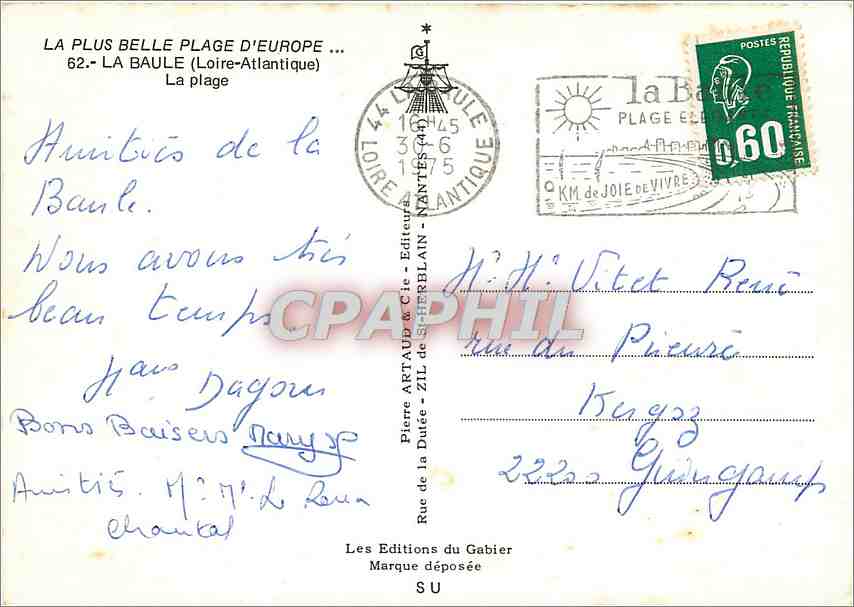 LA PLUS BELLE PLAGE D'EUROPE ...
62.- LA BAULE (Loire-Atlantique)
La plage
Amitiés de la
Baule.
Nous avons très
beau temps.
Bons Baisers Maryse
Amitiés. Mr Me Le
Chantal
Pierre ARTAUD & Cie - Editeurs
Rue de la Dutée - ZIL de St-HERBLAIN - NANTES (44)
G
44 LA BAULE
16H45
30-6
1975
LOIRE ATLANTIQUE
la Baule
PLAGE
KM de JOIE DE VIVRE
POSTES
REPUBLIQUE FRANÇAISE
0,60
Vitet René
rue du Prieuré
22200 Guingamp
CPAPHIL
Les Editions du Gabier
Marque déposée
SU